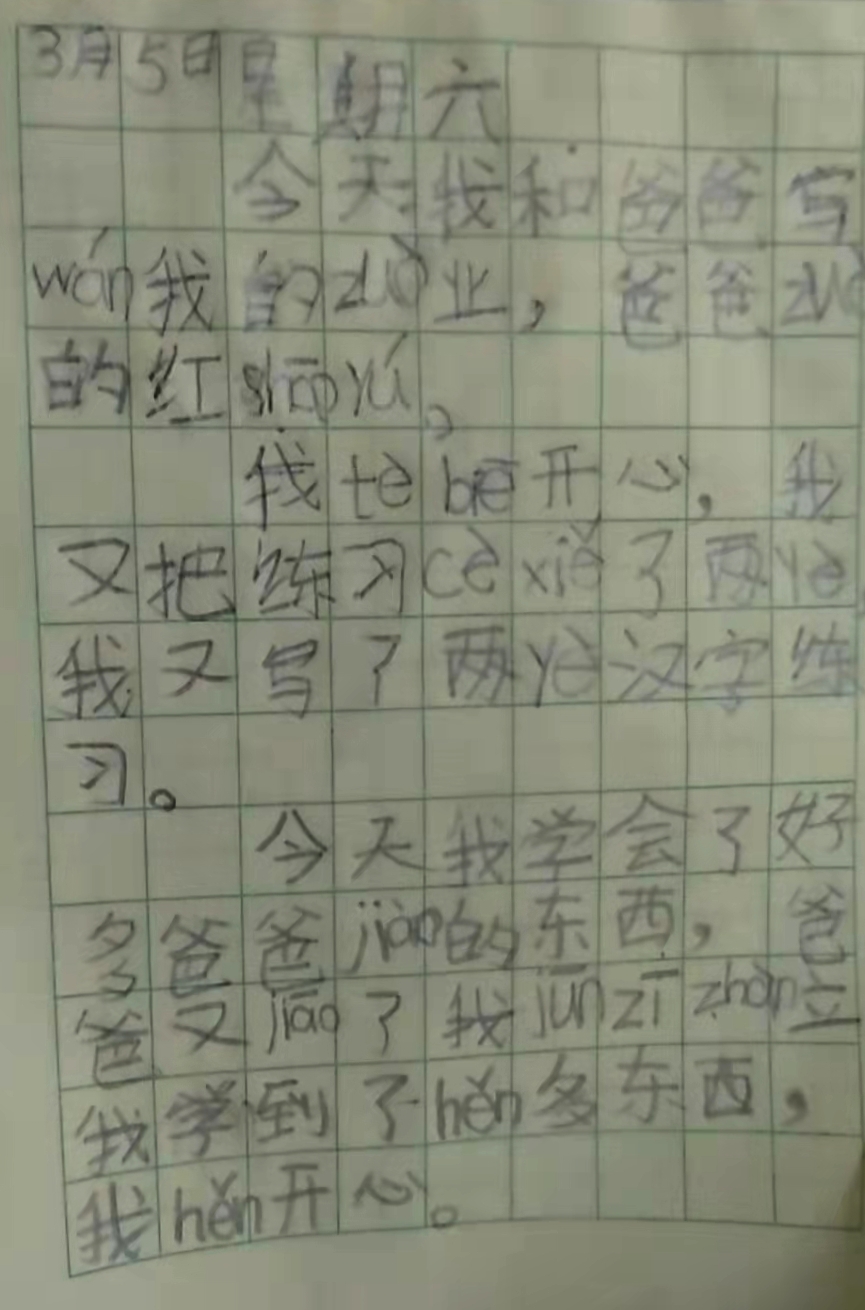 3月5日星期六
今天我和爸爸写
wán我的zuò业，爸爸zuò
的红shāoyú。
我tèbiē开心，我
又把练习cèxiě了两yè
我又写了两yè汉字练
习。
今天我学会了好
多爸爸jiāo的东西，爸
爸又jiāo了我jūnzīzhàn立
我学到了hěn多东西，
我hěn开心。